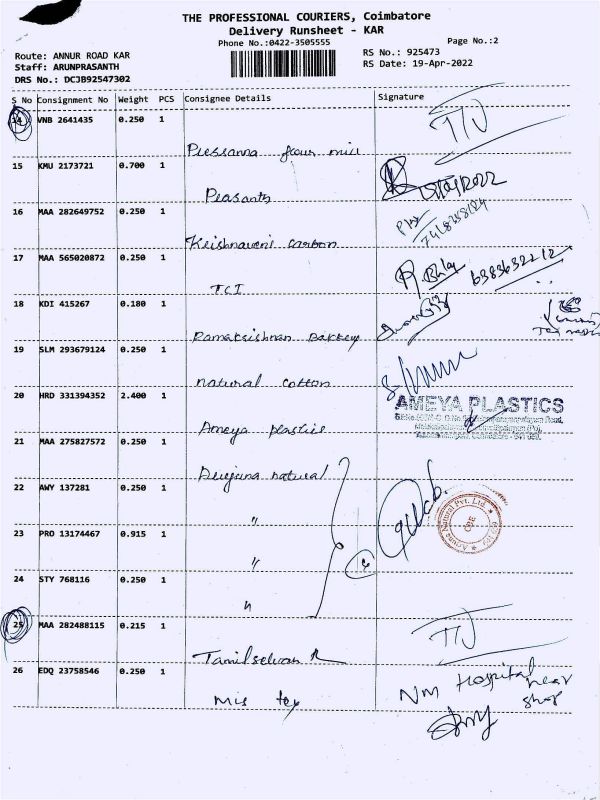 THE PROFESSIONAL COURIERS, Coimbatore
Delivery Runsheet - KAR
Phone No.:0422-3505555
Page No.:2
Route: ANNUR ROAD KAR
RS No.: 925473
Staff: ARUNPRASANTH
RS Date: 19-Apr-2022
DRS No.: DCJB92547302
S No Consignment No Weight PCS Consignee Details Signature
14 VNB 2641435 0.250 1
flour mill
15 KMU 2173721 0.700 1
16 MAA 282649752 0.250 1
Krishnaveni carbon
17 MAA 565020872 0.250 1
R. Bala 6383632212
TCI
18 KDI 415267 0.180 1
Ramakrishnan Bakkery
19 SLM 293679124 0.250 1
natural cotton
20 HRD 331394352 2.400 1
AMEYA PLASTICS
Ameya plastics
21 MAA 275827572 0.250 1
natural
22 AWY 137281 0.250 1
"
23 PRO 13174467 0.915 1
"
24 STY 768116 0.250 1
"
25 MAA 282488115 0.215 1
Tamilselvan R
26 EDQ 23758546 0.250 1
NM Hospital near shop
Mis tex